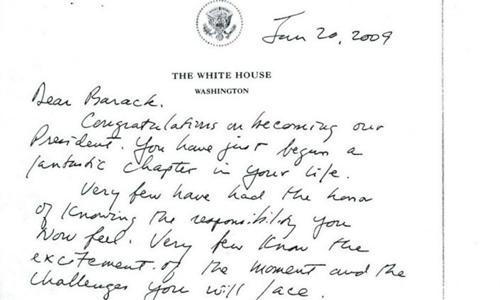 Jan 20, 2009
THE WHITE HOUSE
WASHINGTON
Dear Barack.
Congratulations on becoming our
President. You have just begun a
fantastic chapter in your life.
Very few have had the honor
of knowing the responsibility you
now feel. Very few know the
excitement of the moment and the
challenges you will face.